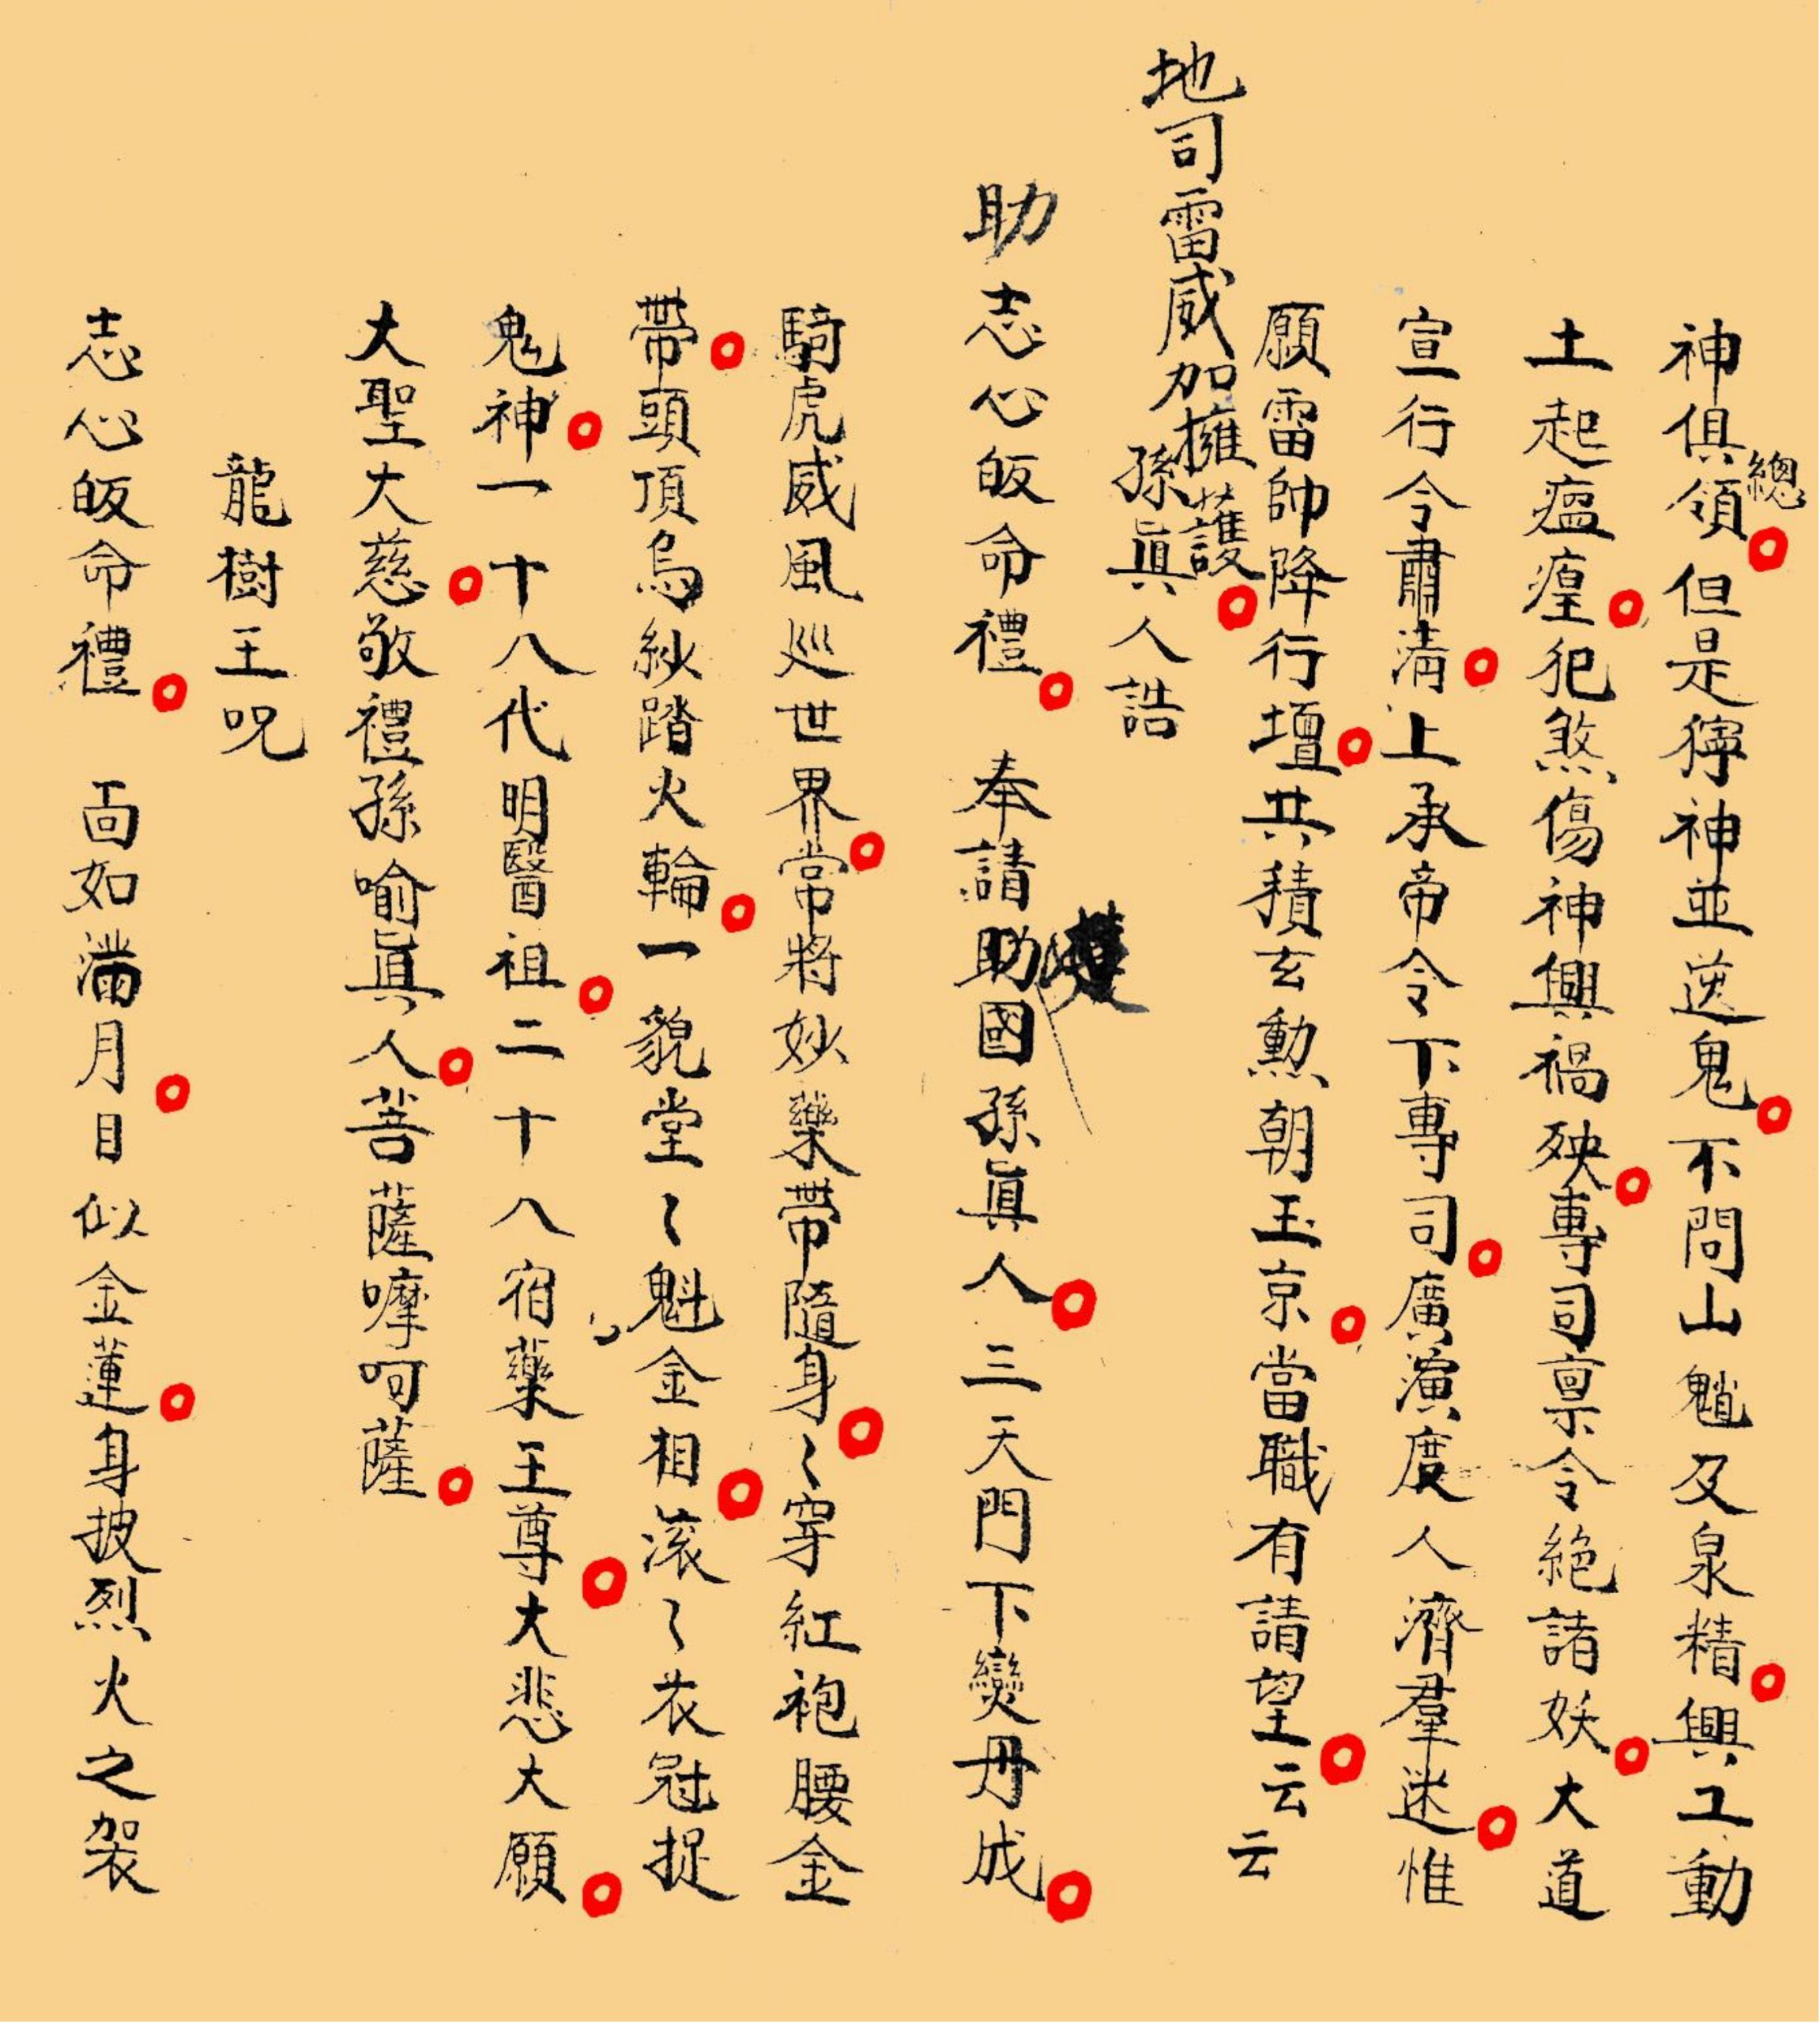 神俱領總但是獰神並送鬼不問山魈及泉精興工動
土起瘟瘽犯煞傷神興禍殃專司禀令絕諸妖大道
宣行令肅清上承帝令下專司廣演度人濟羣迷惟
願雷帥降行壇共積玄勲朝玉京當職有請望云云
地司雷威加擁護
孫眞人誥
助志心皈命禮 奉請助國孫眞人三天門下變丹成
騎虎威風巡世界常將妙藥帶隨身〻穿紅袍腰金
帶頭頂烏紗踏火輪一貌堂〻魁金相滚〻衣冠捉
鬼神一十八代明醫祖二十八宿藥王尊大悲大願
大聖大慈敬禮孫喻眞人菩薩嚤呵薩
龍樹王呪
志心皈命禮 面如滿月目似金蓮身披烈火之袈